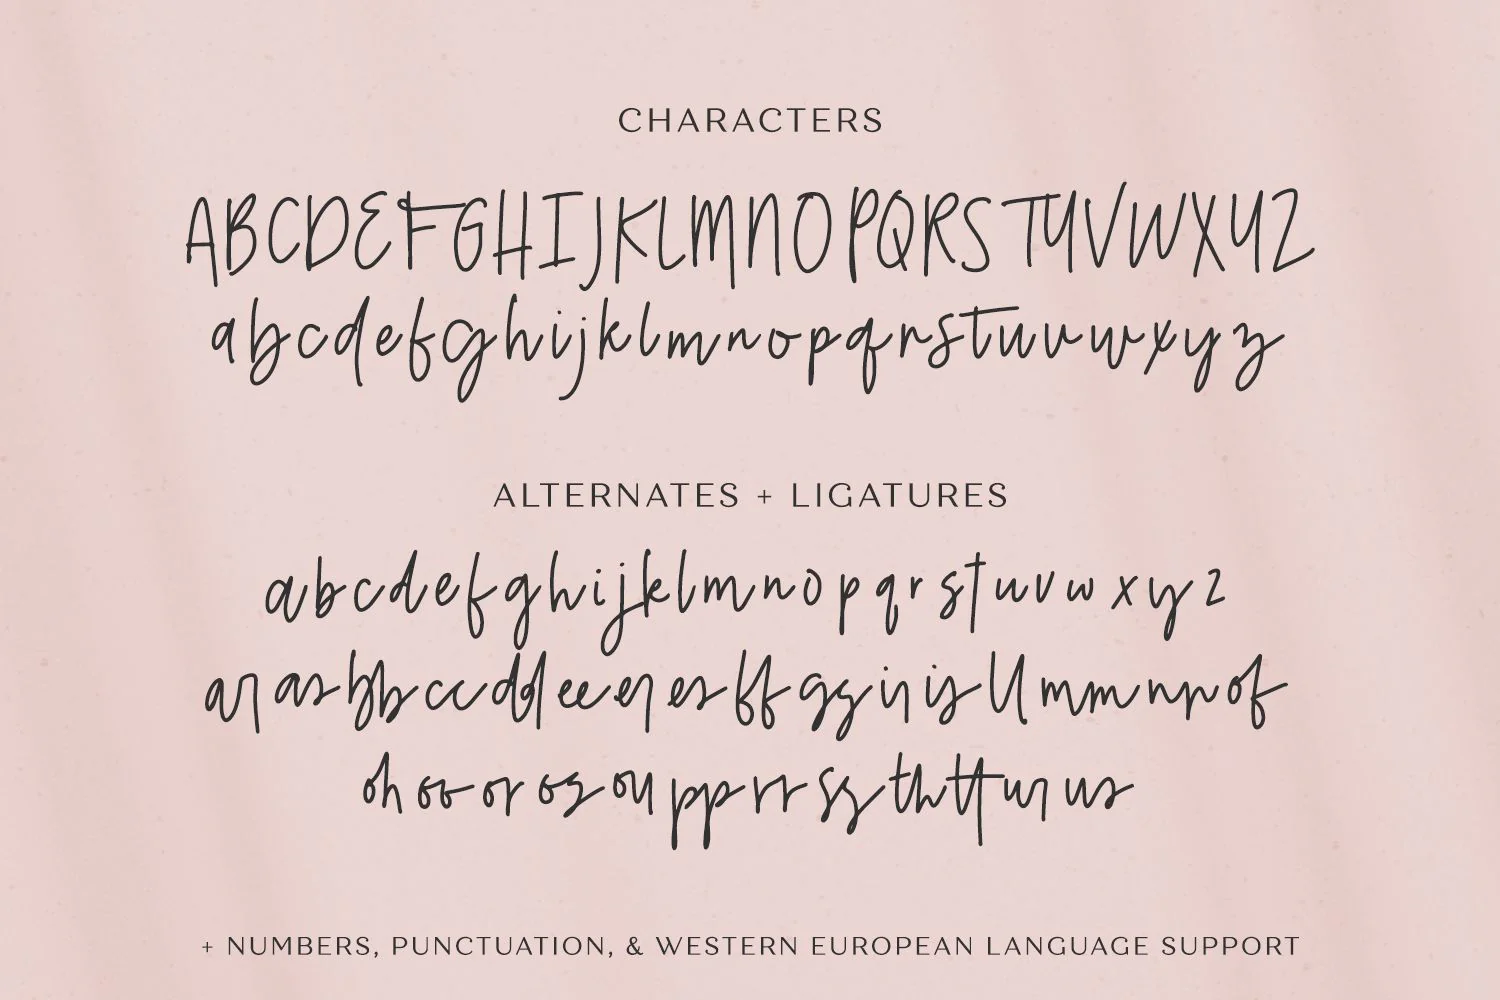 CHARACTERS
ABCDEFGHIJKLMNOPQRSTUVWXYZ
abcdefghijklmnopqrstuvwxyz
ALTERNATES + LIGATURES
abcdefghijklmnopqrstuvwxyz
ar as bb cc dd ee er es ff gg ir is ll mm nn of
oh oo or os ou pp rr ss th tt ur us
+ NUMBERS, PUNCTUATION, & WESTERN EUROPEAN LANGUAGE SUPPORT